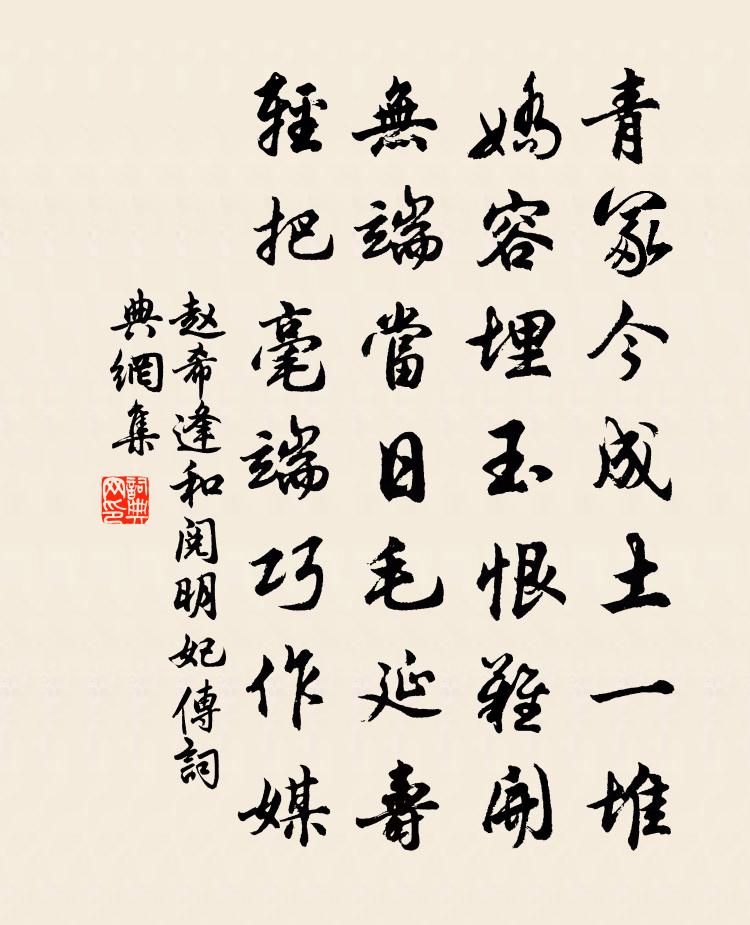 青冢今成土一堆
嬌容埋玉恨難開
無端當日毛延壽
輕把毫端巧作媒
赵希逢和閱明妃傳詞
典網集
詞典
网印